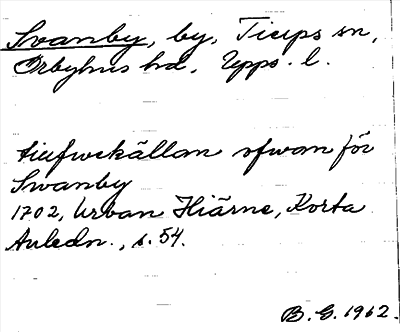 Svanby, by, Tierps sn,
Örbyhus hd, Upps. l.
tiufwekällan ofwan för
Swanby
1702, Urban Hiärne, Korta
Anledn., s. 54.
B. G. 1962.